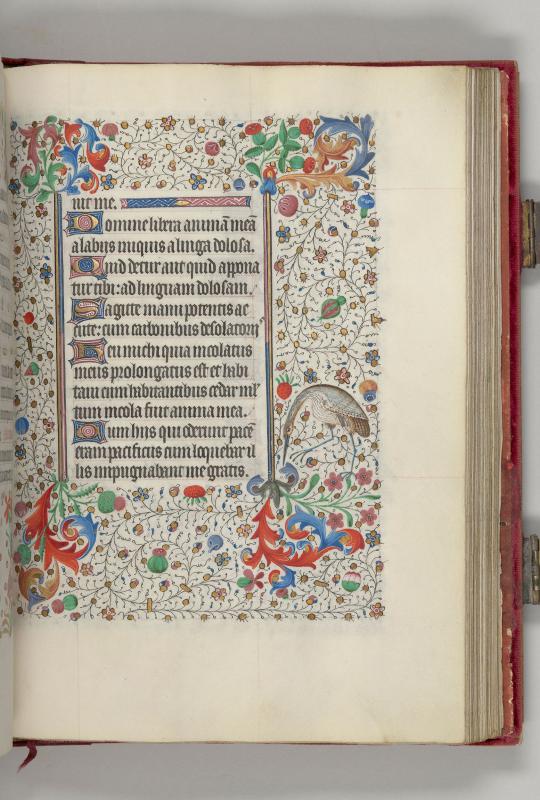 uit me.
Domine libera animā meā
a labijs iniquis a linga dolosa.
Quid detur aut quid appona
tur tibi: ad linguam dolosam.
Sagitte mani potentis ac
cute: cum carbonibus desolatorii
Heu michi quia incolatus
meus prolongatus est et habi
taui cum habitantibus cedar ml'
tum incola fuit anima mea.
Cum hijs qui oderunt pacē
eram pacificus cum loquebar il
lis impugnabant me gratis.